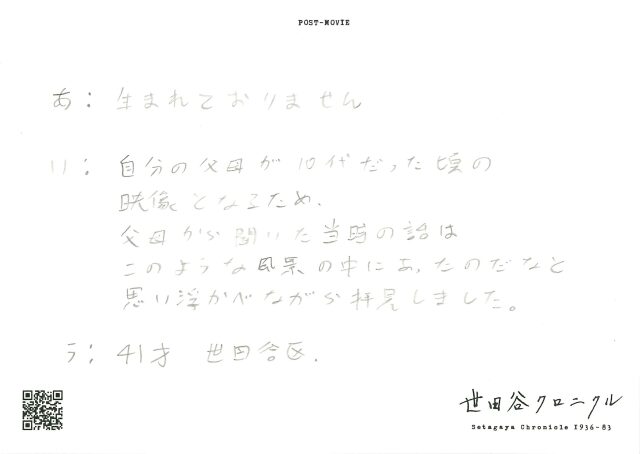 POST-MOVIE
あ: 生まれておりません
い: 自分の父母が10代だった頃の
映像となるため、
父母から聞いた当時の話は
このような風景の中にあったのだなと
思い浮かべながら拝見しました。
う: 41才 世田谷区.
世田谷クロニクル
Setagaya Chronicle 1936-83